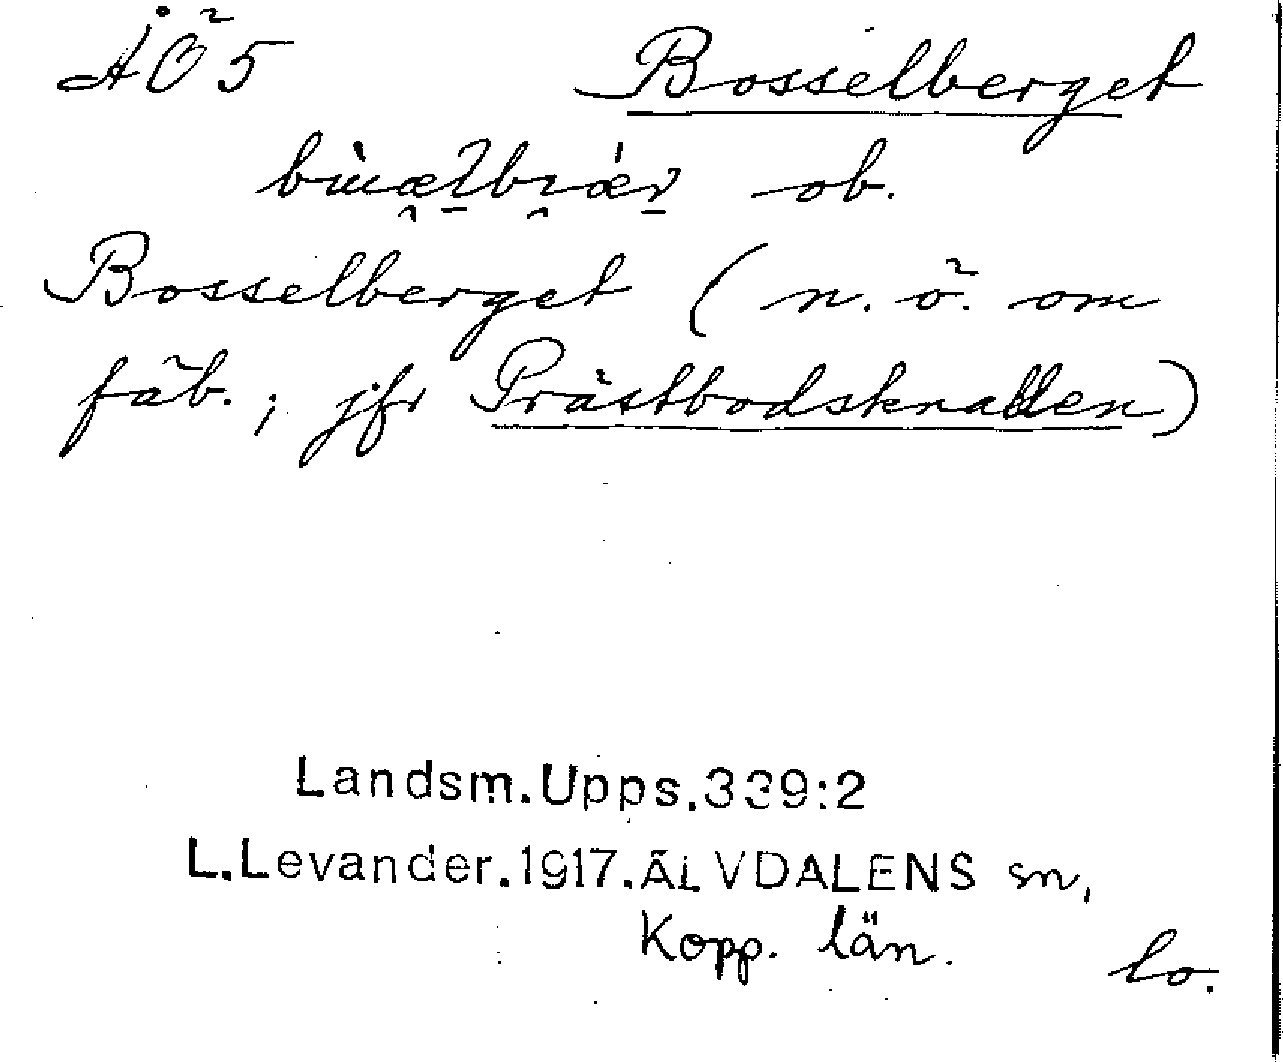 ÅÖ5 Bosselberget
ob.
Bosselberget (n. ö. om
fäb.; jfr Prästbodsknallen)
Landsm.Upps.339:2
L.Levander.1917.ÄLVDALENS sn,
Kopp. län. lo.